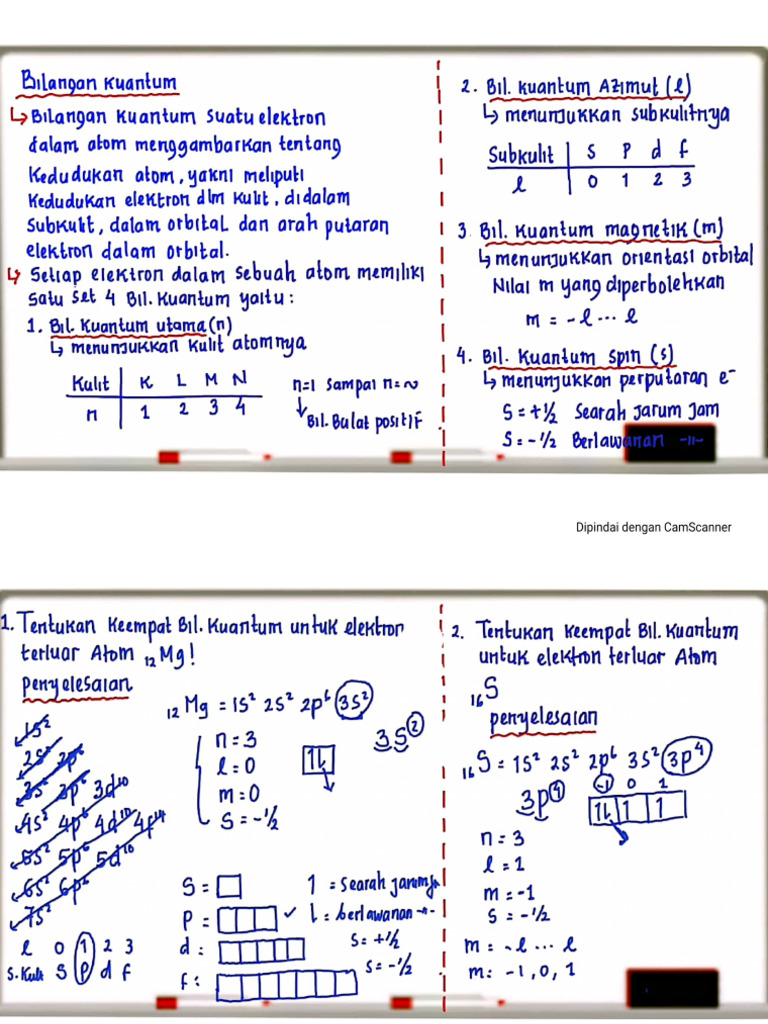 Bilangan Kuantum
↳ Bilangan Kuantum suatu elektron
dalam atom menggambarkan tentang
Kedudukan atom, yakni meliputi
Kedudukan elektron dlm kulit, didalam
Subkulit, dalam orbital dan arah putaran
elektron dalam orbital.
↳ Setiap elektron dalam sebuah atom memiliki
satu set 4 Bil. Kuantum yaitu :
1. Bil. Kuantum utama (n)
↳ menunjukkan kulit atomnya
Kulit | K L M N
n | 1 2 3 4
n=1 sampai n=∾
↓
Bil. Bulat positif
2. Bil. Kuantum Azimut (l)
↳ menunjukkan subkulitnya
Subkulit | S P d f
l | 0 1 2 3
3. Bil. Kuantum magnetik (m)
↳ menunjukkan orientasi orbital
Nilai m yang diperbolehkan
m = -l ... l
4. Bil. Kuantum spin (s)
↳ menunjukkan perputaran e⁻
S = +½ Searah Jarum Jam
S = -½ Berlawanan -11-
Dipindai dengan CamScanner
1. Tentukan Keempat Bil. Kuantum untuk elektron
terluar Atom ₁₂Mg!
penyelesaian
₁₂Mg = 1S² 2S² 2p⁶ 3S²
3S²
n = 3
l = 0
m = 0
S = -½
1l
1S²
2S² 2p⁶
3S² 3p⁶ 3d¹⁰
4S² 4p⁶ 4d¹⁰ 4f¹⁴
5S² 5p⁶ 5d¹⁰
6S² 6p⁶
7S²
l 0 1 2 3
S. Kulit S P d f
S =
P =
d =
f :
1 = Searah jarumj
l = berlawanan -"-
S = +½
S = -½
2. Tentukan Keempat Bil. Kuantum
untuk elektron terluar Atom
₁₆S
penyelesaian
₁₆S = 1S² 2S² 2p⁶ 3S² 3p⁴
-1 0 1
3p⁴ 1l 1 1
n = 3
l = 1
m = -1
S = -½
m = -l ... l
m : -1, 0, 1